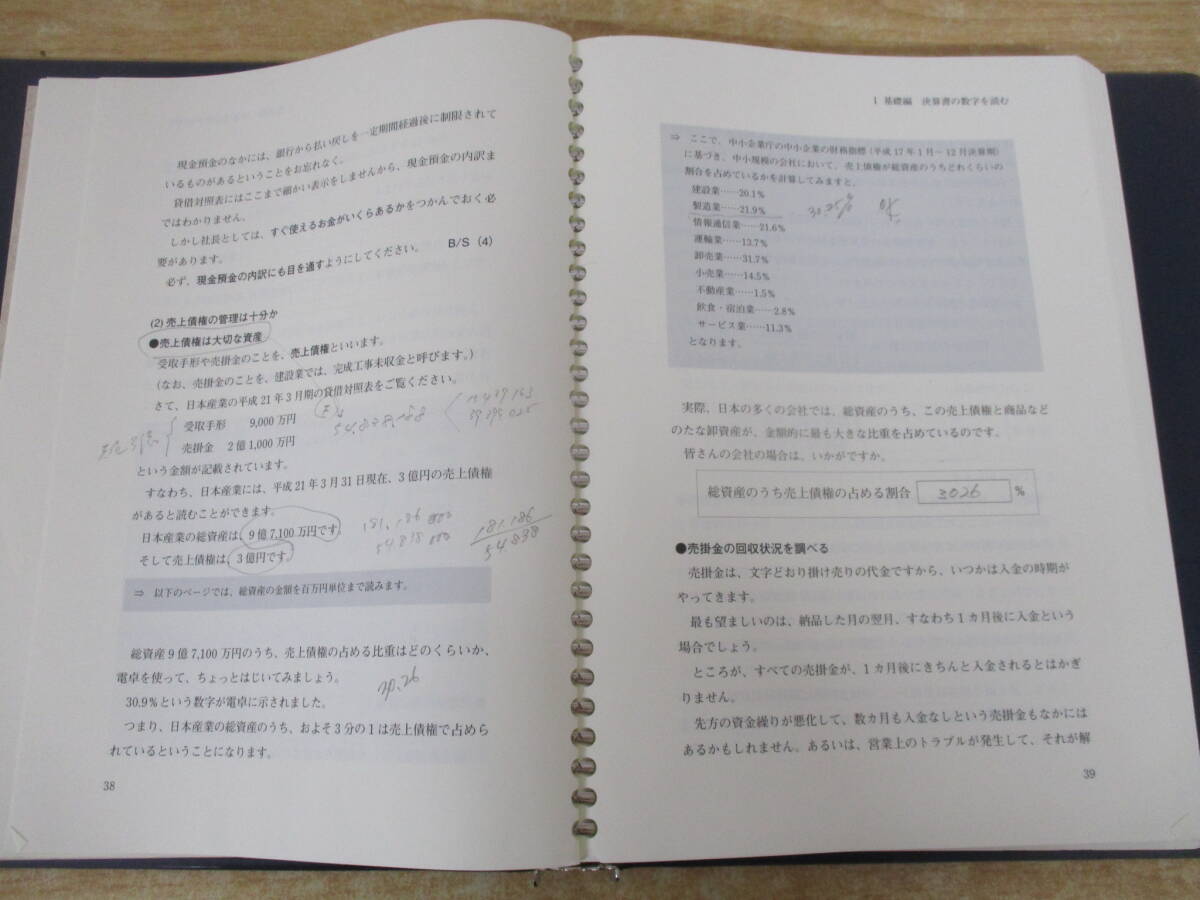 現金預金のなかには、銀行から払い戻しを一定期間経過後に制限されて
いるものがあるということをお忘れなく。
貸借対照表にはここまで細かい表示をしませんから、現金預金の内訳ま
ではわかりません。
しかし社長としては、すぐ使えるお金がいくらあるかをつかんでおく必
要があります。
必ず、現金預金の内訳にも目を通すようにしてください。 B/S (4)
(2) 売上債権の管理は十分か
●売上債権は大切な資産
受取手形や売掛金のことを、売上債権といいます。
(なお、売掛金のことを、建設業では、完成工事未収金と呼びます。)
さて、日本産業の平成21年3月期の貸借対照表をご覧ください。
受取手形 9,000万円
売掛金 2億1,000万円
という金額が記載されています。
すなわち、日本産業には、平成21年3月31日現在、3億円の売上債権
があると読むことができます。
日本産業の総資産は、9億7,100万円です。
181,186 000
そして売上債権は、3億円です。
54,838 000
181.186
54.838
⇒ 以下のページでは、総資産の金額を百万円単位まで読みます。
総資産9億7,100万円のうち、売上債権の占める比重はどのくらいか、
電卓を使って、ちょっとはじいてみましょう。
30.26
30.9%という数字が電卓に示されました。
つまり、日本産業の総資産のうち、およそ3分の1は売上債権で占めら
れているということになります。
38
I 基礎編 決算書の数字を読む
⇒ ここで、中小企業庁の中小企業の財務指標(平成17年1月〜12月決算期)
に基づき、中小規模の会社において、売上債権が総資産のうちどれくらいの
割合を占めているかを計算してみますと、
建設業……20.1%
製造業……21.9%
情報通信業……21.6%
運輸業……13.7%
卸売業……31.7%
小売業……14.5%
不動産業……1.5%
飲食・宿泊業……2.8%
サービス業……11.3%
となります。
実際、日本の多くの会社では、総資産のうち、この売上債権と商品など
のたな卸資産が、金額的に最も大きな比重を占めているのです。
皆さんの会社の場合は、いかがですか。
総資産のうち売上債権の占める割合 3026 %
●売掛金の回収状況を調べる
売掛金は、文字どおり掛け売りの代金ですから、いつかは入金の時期が
やってきます。
最も望ましいのは、納品した月の翌月、すなわち1カ月後に入金という
場合でしょう。
ところが、すべての売掛金が、1カ月後にきちんと入金されるとはかぎ
りません。
先方の資金繰りが悪化して、数カ月も入金なしという売掛金もなかには
あるかもしれません。あるいは、営業上のトラブルが発生して、それが解
39